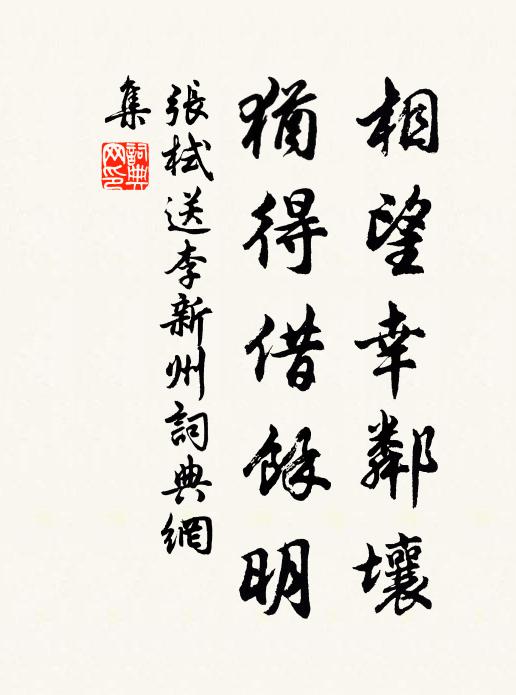 相望幸鄰壤
猶得借餘明
張栻送李新州詞典網
集
詞典網印